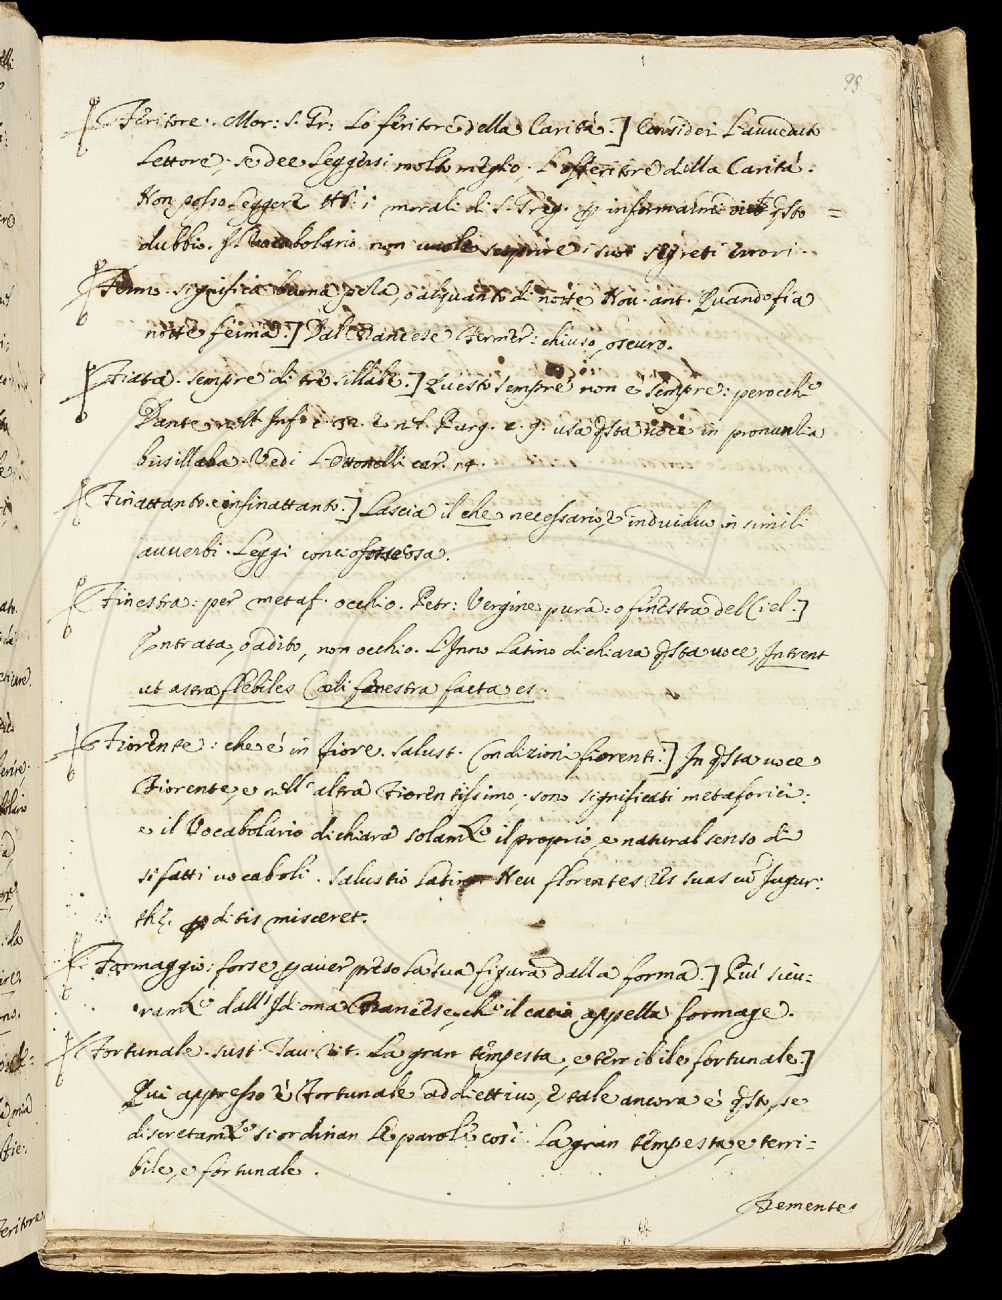 95
Feritore. Mor: S. Gr: Lo feritore della Carità.] Consideri l'avveduto
Lettore, se dee leggersi molto meglio, L'offeritore della Carità.
Non posso leggere i morali di S. Greg. p informarmi qsto
dubbio. Il Vocabolario non vuole scoprire i suoi segreti errori.
Fermo. significa buona pezza, o alquanto di notte Nov. ant. Quando fia
notte ferma.] Dal Francese Fermer: chiuso, oscuro.
Fiata. sempre di tre sillabe.] Questo sempre non è sempre: perocche
Dante nell' Inf. c. 32. e nel Purg. c. 9. usa qsta voce in pronunzia
bissillaba. Vedi L'Ottonelli car. 14.
Finattanto. e infinattanto.] Lascia il che necessario, e individuo in simili
avverbi. Leggi conciofossecosa.
Finestra: per metaf. occhio. Petr: Vergine pura: o finestra del Ciel.]
Entrata, o adito, non occhio. L'Inno Latino dichiara qsta voce, Intrent
ut astra flebiles Cœli fenestra facta es.
Fiorente: che è in fiore. Salust. Condizioni fiorenti.] In qsta voce
Fiorente, e nell' altra Fiorentissimo, sono significati metaforici:
e il Vocabolario dichiara solamte il proprio, e natural senso di
sifatti vocaboli. Salustio Latino Neu florentes res suas cũ Jugur:
thę pditis misceret.
Formaggio: forse p aver preso la sua figura dalla forma.] Più sicu-
ramte dall' Idioma Franciese, che il cacio appella formage.
Fortunale. sust. Tav. rit. La gran tempesta, e terribile fortunale.]
Qui appresso è Fortunale addiettivo, e tale ancora è qsto, se
discretamte si ordinan le parole così. La gran tempesta, e terri-
bile, e fortunale.
Fremente